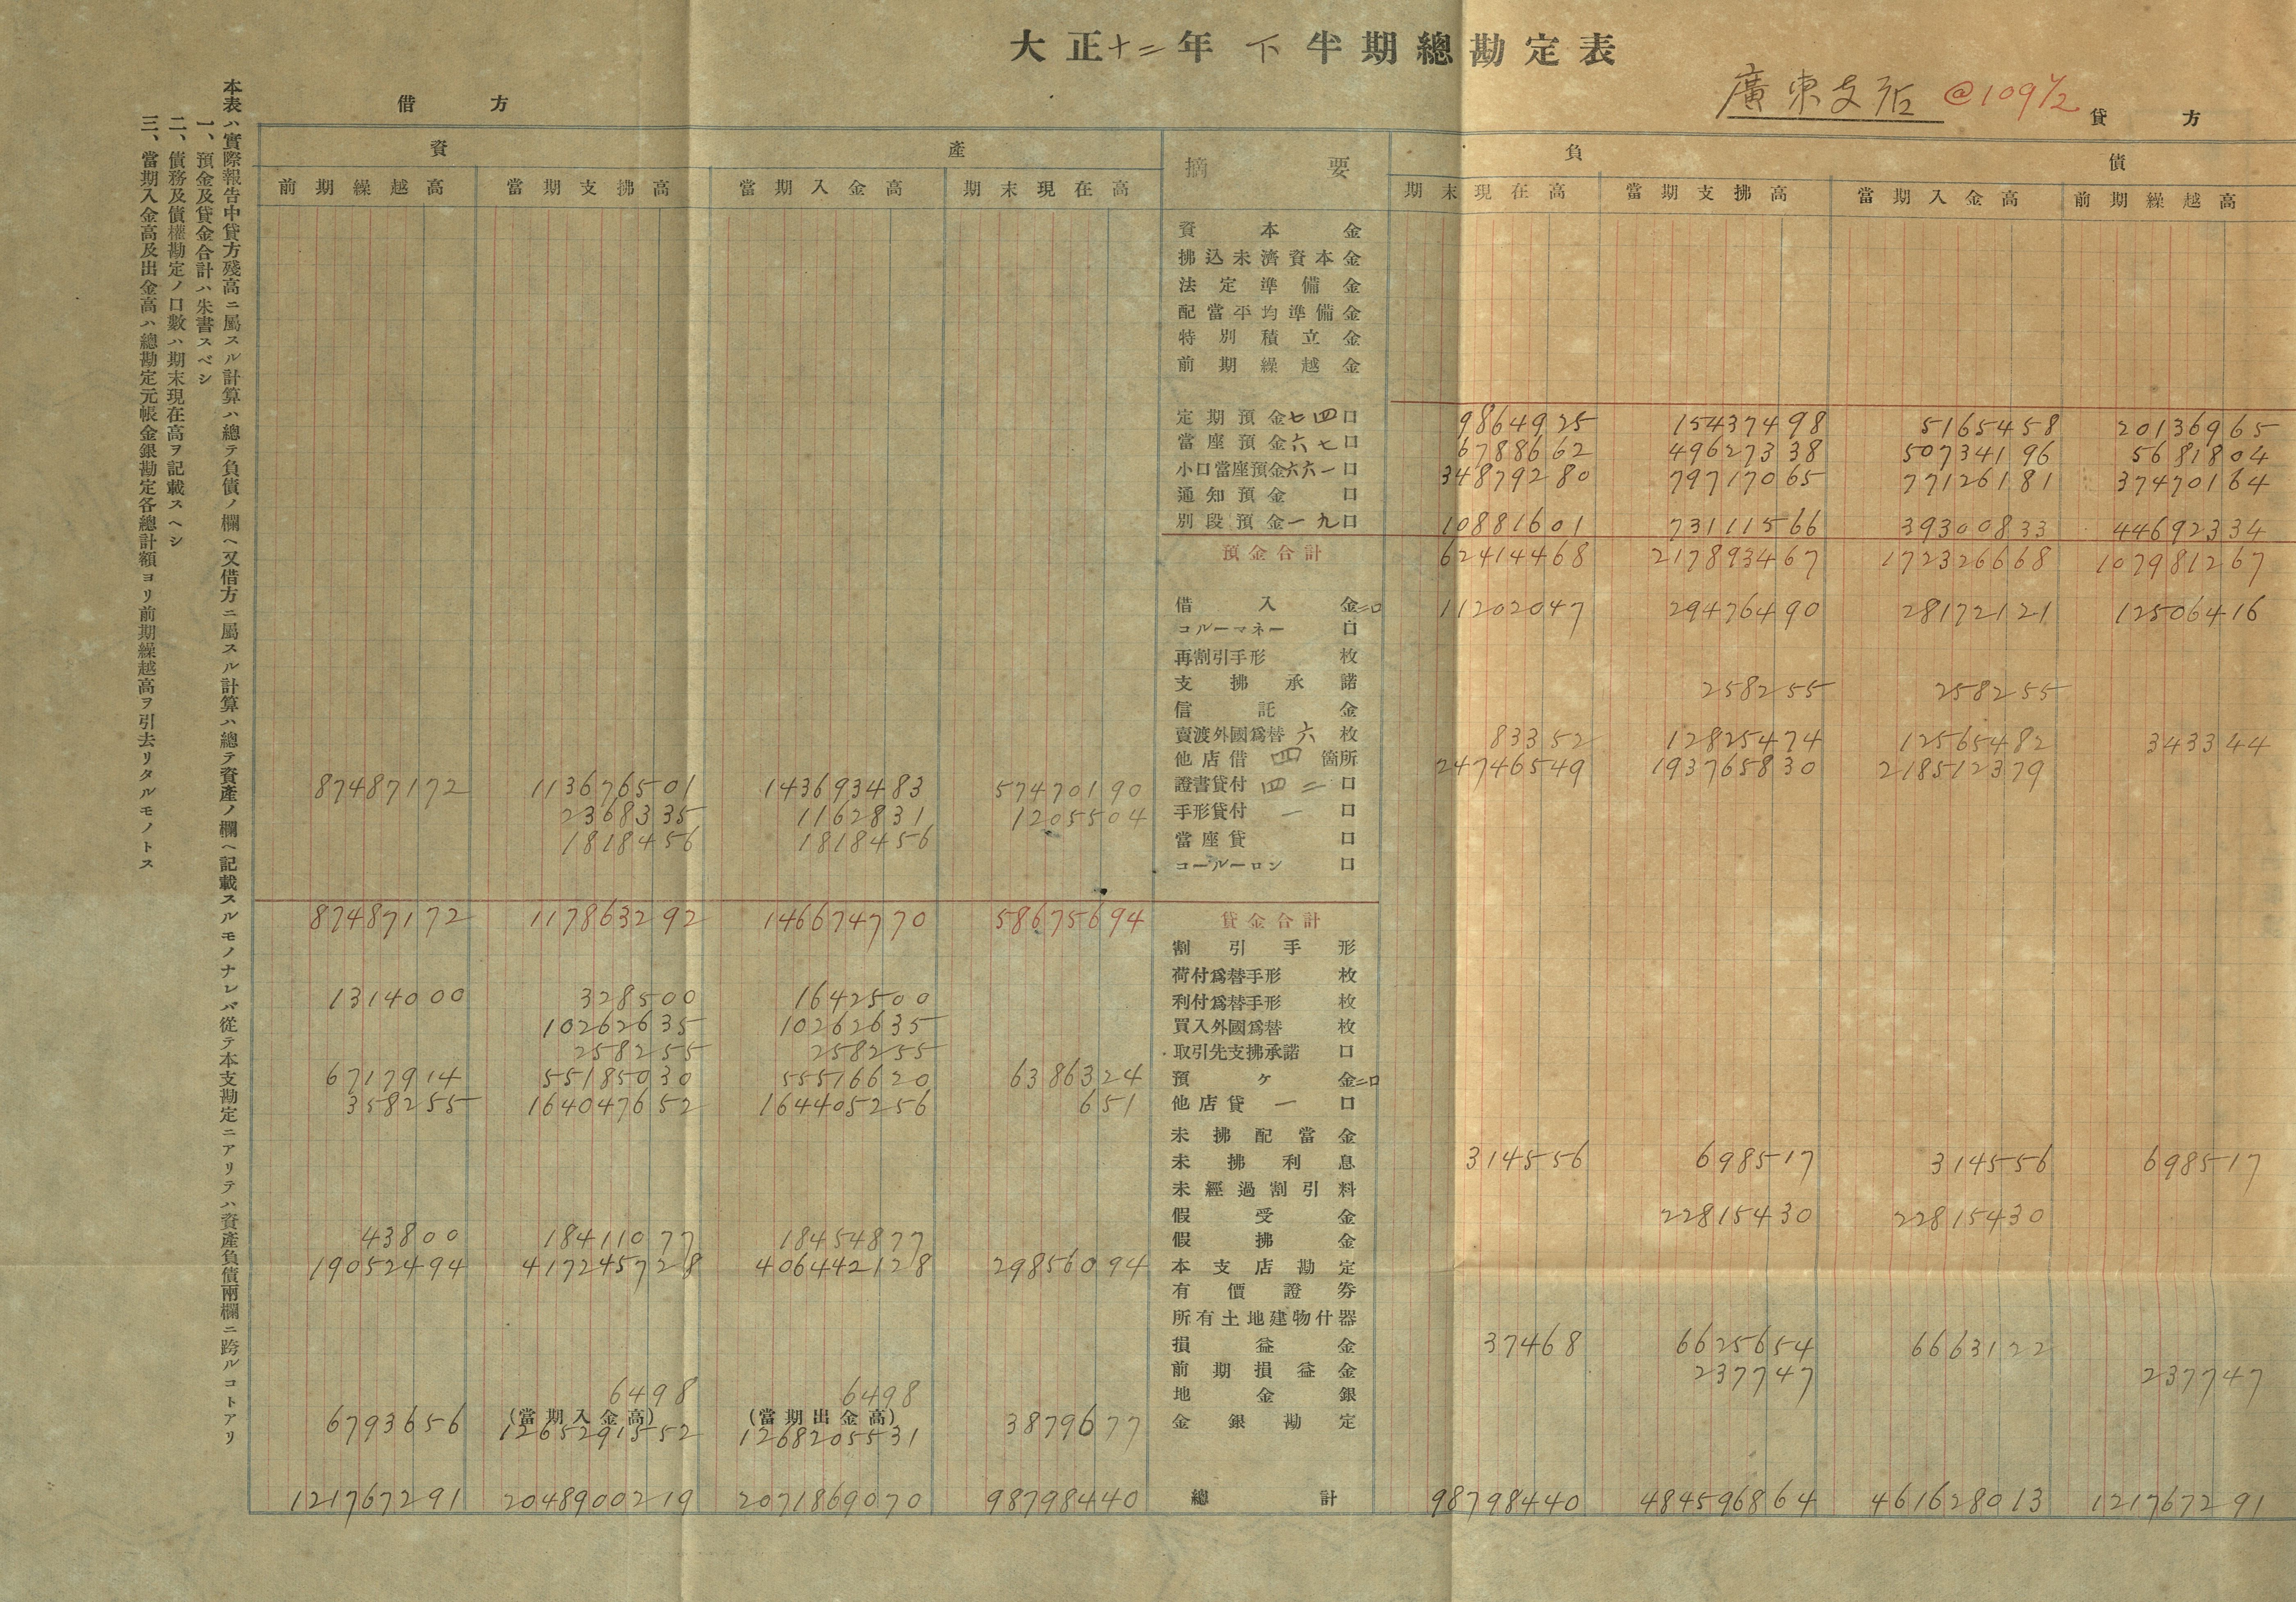 大正十二年下半期總勘定表
廣東支店 @109 1/2
借方 貸方
資產 摘要 負債
前期繰越高 當期支拂高 當期入金高 期末現在高 期末現在高 當期支拂高 當期入金高 前期繰越高
資本金
拂込未濟資本金
法定準備金
配當平均準備金
特別積立金
前期繰越金
定期預金七四口 9864925 15437498 5165458 20136965
當座預金六七口 6788662 49627338 50734196 5681804
小口當座預金六六一口 34879280 79717065 77126181 37470164
通知預金 口
別段預金一九口 10881601 73111566 39300833 44692334
預金合計 62414468 217893467 172326668 107981267
借入金二口 11202047 29476490 28172121 12506416
コルーマネー 口
再割引手形 枚
支拂承諾 258255 258255
信託金
賣渡外國爲替六枚 83352 12825474 12565482 343344
他店借四箇所 24746549 193765830 218512379
87487172 113676501 143693483 57470190 證書貸付四二口
2368335 1162831 1205504 手形貸付一口
1818456 1818456 當座貸 口
コールーロン 口
87487172 117863292 146674770 58675694 貸金合計
割引手形
荷付爲替手形 枚
1314000 328500 1642500 利付爲替手形 枚
10262635 10262635 買入外國爲替 枚
258255 258255 取引先支拂承諾 口
6717914 55185030 55516620 6386324 預ケ金二口
358255 164047652 164405256 651 他店貸一口
未拂配當金
未拂利息 314556 698517 314556 698517
未經過割引料
假受金 22815430 22815430
43800 18411077 18454877 假拂金
19052494 417245728 406442128 29856094 本支店勘定
有價證券
所有土地建物什器
損益金 37468 6625654 6663122
前期損益金 237747 237747
6498 6498 地金銀
6793656 (當期入金高) (當期出金高) 3879677 金銀勘定
1265291552 1268205531
121767291 2048900219 2071869070 98798440 總計 98798440 484596864 461628013 121767291
本表ハ實際報告中貸方殘高ニ屬スル計算ハ總テ負債ノ欄ヘ又借方ニ屬スル計算ハ總テ資產ノ欄ヘ記載スルモノナレバ從テ本支勘定ニアリテハ資產負債兩欄ニ跨ルコトアリ
一、預金及貸金合計ハ朱書スベシ
二、債務及債權勘定ノ口數ハ期末現在高ヲ記載スヘシ
三、當期入金高及出金高ハ總勘定元帳金銀勘定各總計額ヨリ前期繰越高ヲ引去リタルモノトス